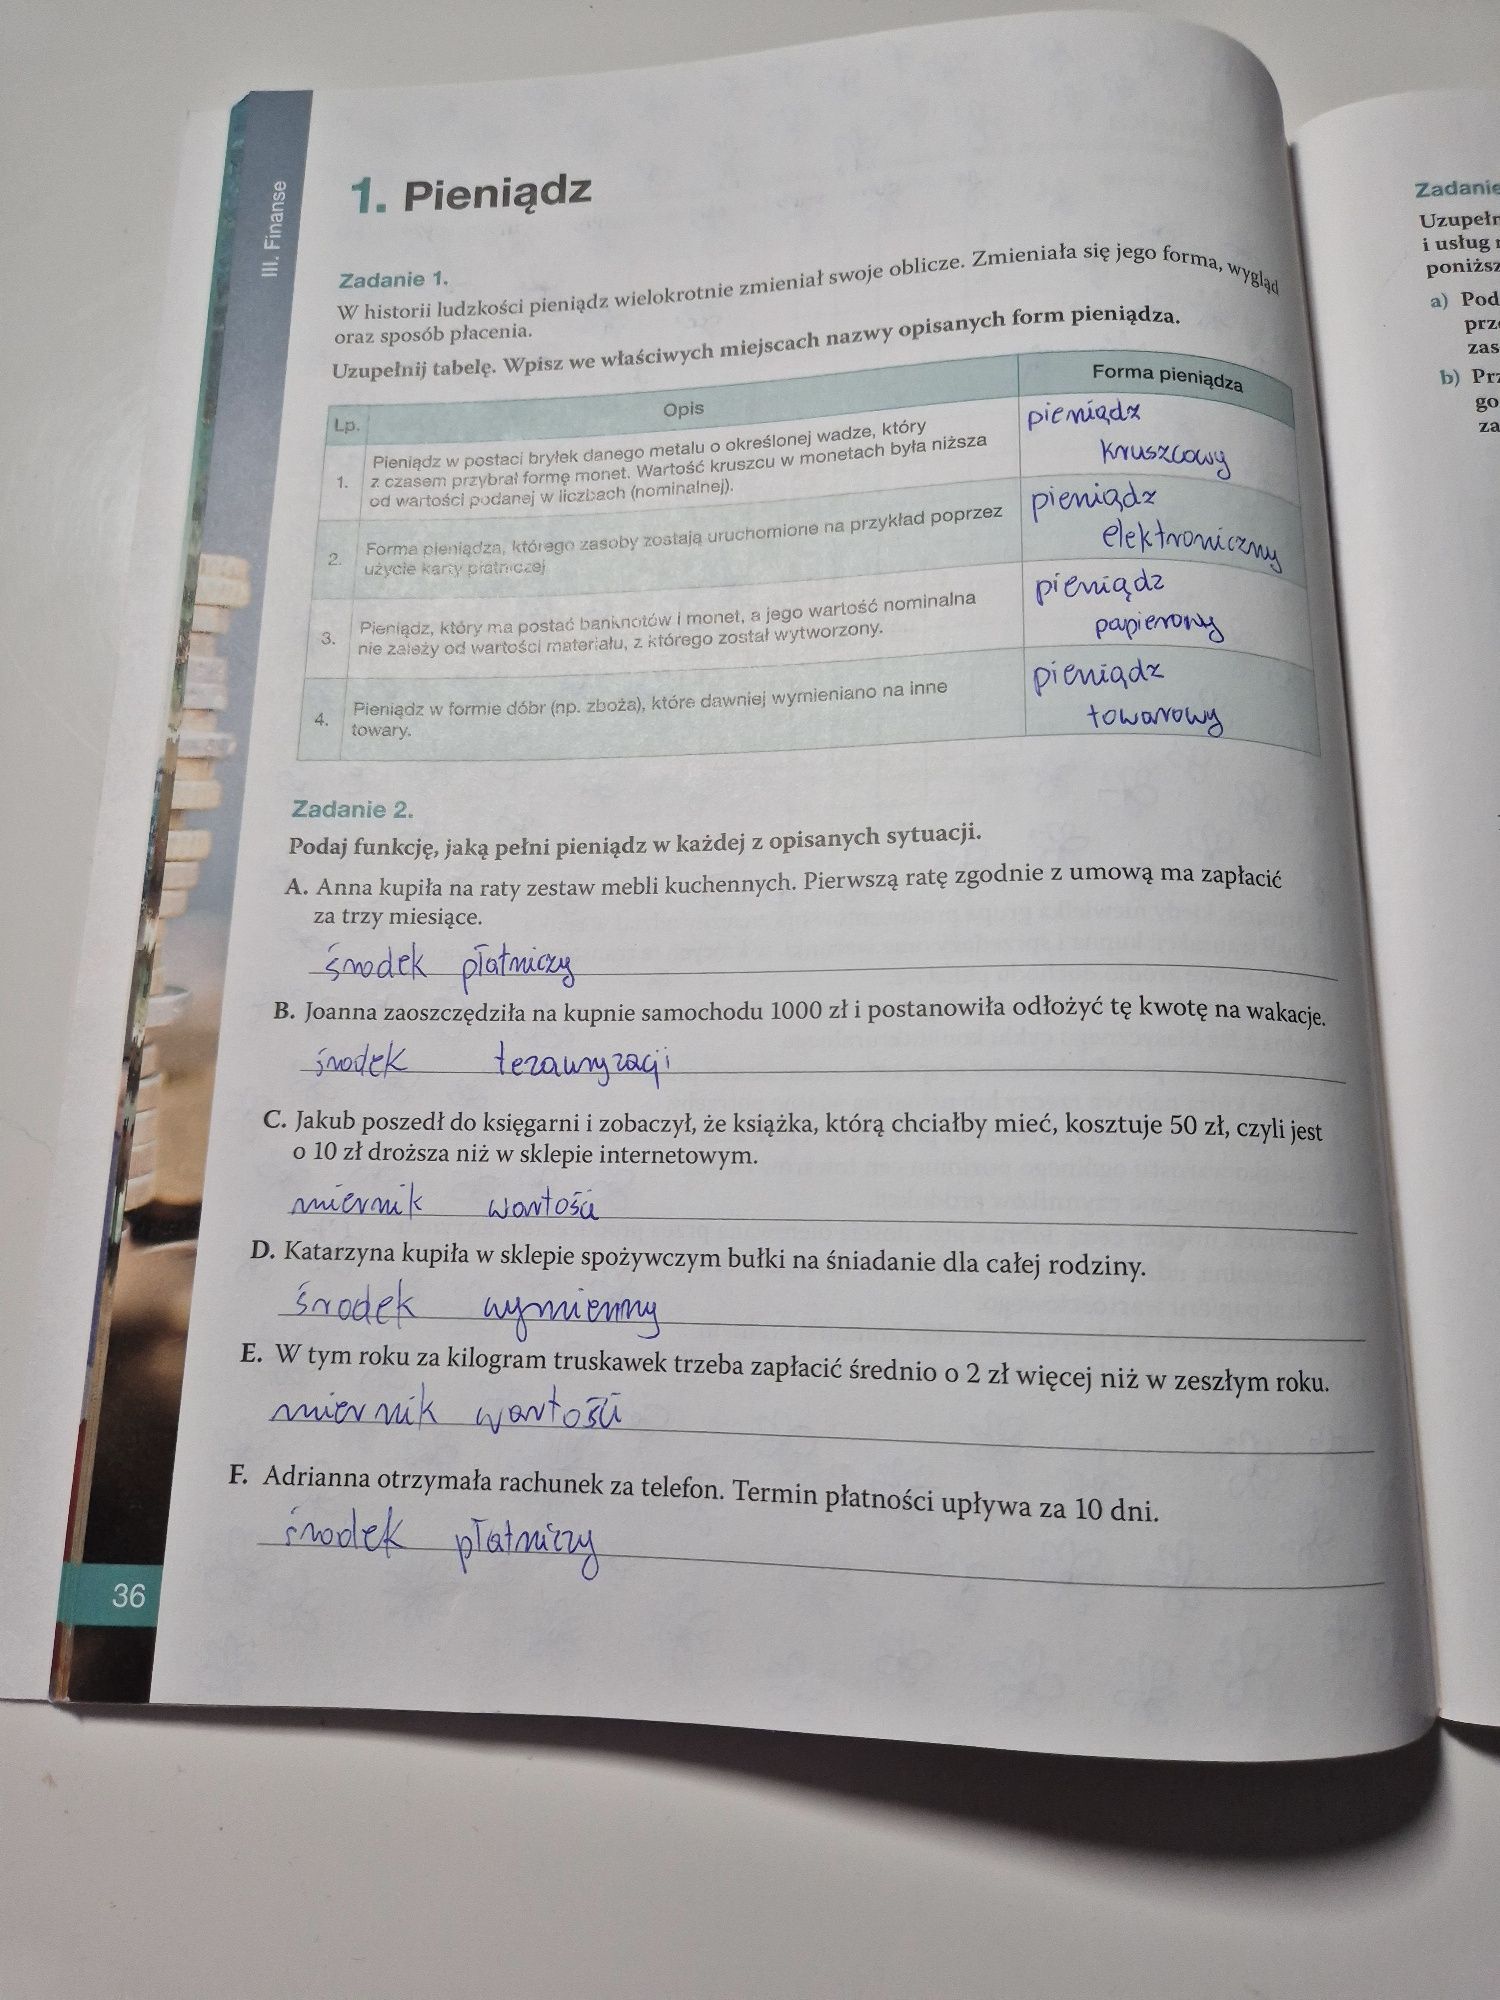 III. Finanse
1. Pieniądz
Zadanie 1.
W historii ludzkości pieniądz wielokrotnie zmieniał swoje oblicze. Zmieniała się jego forma, wygląd
oraz sposób płacenia.
Uzupełnij tabelę. Wpisz we właściwych miejscach nazwy opisanych form pieniądza.
Lp. Opis Forma pieniądza
1. Pieniądz w postaci bryłek danego metalu o określonej wadze, który
z czasem przybrał formę monet. Wartość kruszcu w monetach była niższa
od wartości podanej w liczbach (nominalnej).
pieniądz
kruszcowy
2. Forma pieniądza, którego zasoby zostają uruchomione na przykład poprzez
użycie karty płatniczej
pieniądz
elektroniczny
3. Pieniądz, który ma postać banknotów i monet, a jego wartość nominalna
nie zależy od wartości materiału, z którego został wytworzony.
pieniądz
papierowy
4. Pieniądz w formie dóbr (np. zboża), które dawniej wymieniano na inne
towary.
pieniądz
towarowy
Zadanie 2.
Podaj funkcję, jaką pełni pieniądz w każdej z opisanych sytuacji.
A. Anna kupiła na raty zestaw mebli kuchennych. Pierwszą ratę zgodnie z umową ma zapłacić
za trzy miesiące.
środek płatniczy
B. Joanna zaoszczędziła na kupnie samochodu 1000 zł i postanowiła odłożyć tę kwotę na wakacje.
środek tezauryzacji
C. Jakub poszedł do księgarni i zobaczył, że książka, którą chciałby mieć, kosztuje 50 zł, czyli jest
o 10 zł droższa niż w sklepie internetowym.
miernik wartości
D. Katarzyna kupiła w sklepie spożywczym bułki na śniadanie dla całej rodziny.
środek wymienny
E. W tym roku za kilogram truskawek trzeba zapłacić średnio o 2 zł więcej niż w zeszłym roku.
miernik wartości
F. Adrianna otrzymała rachunek za telefon. Termin płatności upływa za 10 dni.
środek płatniczy
36
Zadanie
i usług
a) Pod
b)